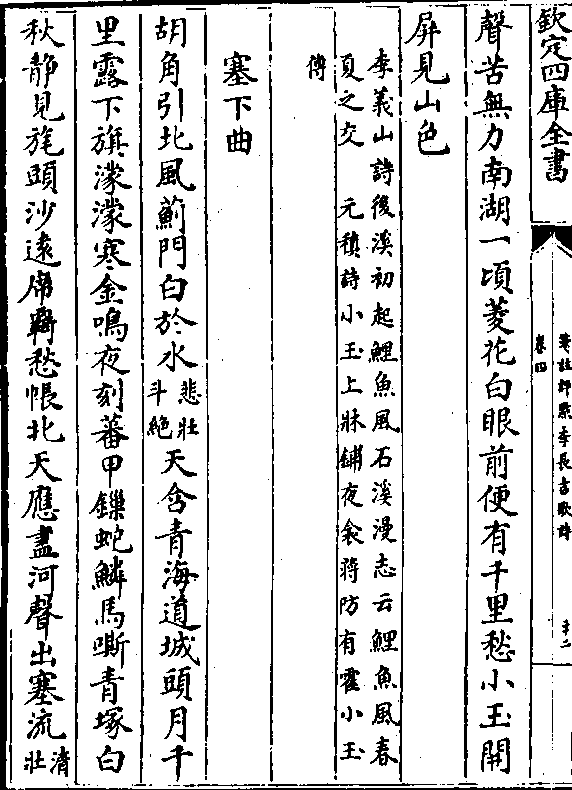 欽定四庫全書
箋註評點李長吉歌詩
卷四
十二
聲苦無力南湖一頃菱花白眼前便有千里愁小玉開
屏見山色
李義山詩後溪初起鯉魚風石溪漫志云鯉魚風春
夏之交 元稹詩小玉上牀鋪夜衾蔣防有霍小玉
傳
塞下曲
胡角引北風薊門白於水悲壯斗絶天含青海道城頭月千
里露下旗濛濛寒金鳴夜刻蕃甲鏁蛇鱗馬嘶青塚白
秋静見旄頭沙逺席羇愁帳北天應盡河聲出塞流清壯